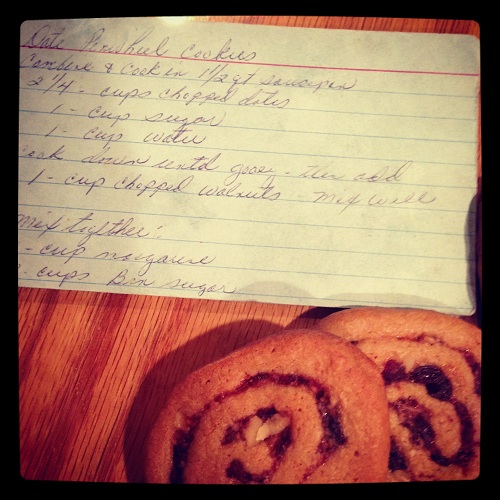 Date Pinwheel Cookies
Combine & Cook in 1 1/2 qt saucepan
2 1/4 - cups chopped dates
1 - cup sugar
1 - cup water
cook down until gooey - then add
1 - cup chopped walnuts - mix well
mix together:
- cup margarine
- cups Brn sugar